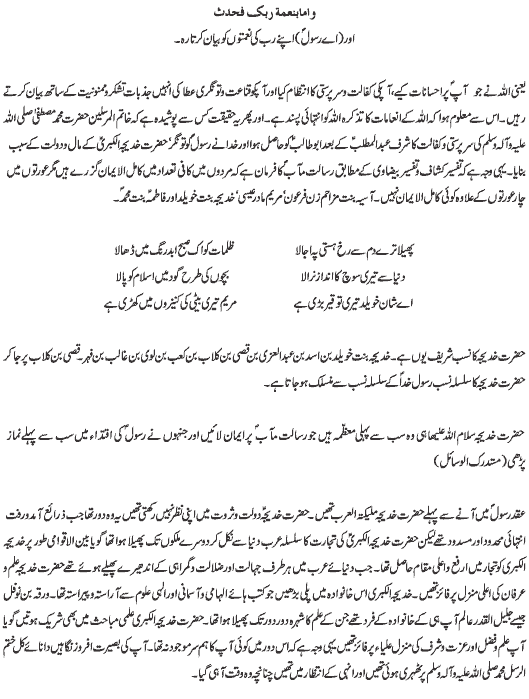 و اما بنعمة ربک فحدث
اور (اے رسولؐ) اپنے رب کی نعمتوں کو بیان کرتا رہ۔
یعنی اللہ نے جو آپؐ پر احسانات کیے، آپکی کفالت و سرپرستی کا انتظام کیا اور آپکو قناعت و تونگری عطا کی انہیں جذبات تشکر و ممنونیت کے ساتھ بیان کرتے
رہیں۔ اس سے معلوم ہوا کہ اللہ کے انعامات کا تذکرہ اللہ کو انتہائی پسند ہے۔ اور پھر یہ حقیقت کس سے پوشیدہ ہے کہ خاتم المرسلین حضرت محمد مصطفیٰ صلی اللہ
علیہ و آلہ وسلم کی سرپرستی و کفالت کا شرف عبدالمطلبؑ کے بعد ابوطالبؑ کو حاصل ہوا اور خدا نے رسولؐ کو تونگر حضرت خدیجۃ الکبریٰؑ کے مال و دولت کے سبب
بنایا۔ یہی وجہ ہے کہ تفسیر کشاف و تفسیر بیضاوی کے مطابق رسالت مآبؐ کا فرمان ہے کہ مردوں میں کافی تعداد میں کامل الایمان گزرے ہیں مگر عورتوں میں
چار عورتوں کے علاوہ کوئی کامل الایمان نہیں۔ آسیہ بنت مزاحم زن فرعون، مریم مادر عیسیٰ، خدیجہ بنت خویلد اور فاطمہؑ بنت محمدؐ۔
پھیلا ترے دم سے رخ ہستی پہ اجالا ظلمات کو اک صبح ابد رنگ میں ڈھالا
دنیا سے تیری سوچ کا انداز نرالا بچوں کی طرح گود میں اسلام کو پالا
اے شان خویلد تیری توقیر بڑی ہے مریم تیری بیٹی کی کنیزوں میں کھڑی ہے
حضرت خدیجہؑ کا نسب شریف یوں ہے۔ خدیجہ بنت خویلد بن اسد بن عبدالعزی بن قصی بن کلاب بن کعب بن لوی بن غالب بن فہر۔ قصی بن کلاب پر جا کر
حضرت خدیجہؑ کا سلسلہ نسب رسول خداؐ کے سلسلہ نسب سے منسلک ہو جاتا ہے۔
حضرت خدیجہ سلام اللہ علیھا ہی وہ سب سے پہلی معظمہ ہیں جو رسالت مآبؐ پر ایمان لائیں اور جنہوں نے رسولؐ کی اقتداء میں سب سے پہلے نماز
پڑھی (مستدرک الوسائل)
عقد رسولؐ میں آنے سے پہلے حضرت خدیجہؑ ملیکتہ العرب تھیں۔ حضرت خدیجہؑ دولت و ثروت میں اپنی نظیر نہیں رکھتی تھیں یہ وہ دور تھا جب ذرائع آمد و رفت
انتہائی محدود اور مسدود تھے لیکن حضرت خدیجۃ الکبریٰؑ کی تجارت کا سلسلہ عرب دنیا سے نکل کر دوسرے ملکوں تک پھیلا ہوا تھا گویا بین الاقوامی طور پر خدیجۃ
الکبریٰ کو تجار میں ارفع و اعلیٰ مقام حاصل تھا۔ جب دنیائے عرب میں ہر طرف جہالت اور ضلالت و گمراہی کے اندھیرے پھیلے ہوئے تھے حضرت خدیجہؑ علم و
عرفان کی اعلیٰ منزل پر فائز تھیں۔ حضرت خدیجۃ الکبریٰؑ اس خانوادہ میں پلی بڑھیں جو کتب ہائے الہامی و آسمانی اور الہی علوم سے آراستہ و پیراستہ تھا۔ ورقہ بن نوفل
جیسے جلیل القدر عالم آپ ہی کے خانوادہ کے فرد تھے جن کے علم کا شہرہ دور دور تک پھیلا ہوا تھا۔ حضرت خدیجۃ الکبریٰ علمی مباحث میں بھی شریک ہوتیں گویا
آپ علم و فضل اور عزت و شرف کی منزل علیاء پر فائز تھیں یہی وجہ ہے کہ اس دور میں کوئی آپ کا ہم سر موجود نہ تھا۔ آپ کی بصیرت افروز نگاہیں دانائے کل ختم
الرسل محمد صلی اللہ علیہ و آلہ وسلم پر ٹھہری ہوئی تھیں اور انہی کے انتظار میں تھیں چنانچہ وہ وقت آ ہی گیا۔